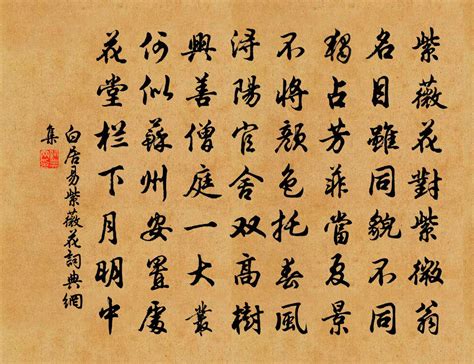 紫薇花對紫微翁
名目雖同貌不同
獨占芳菲當夏景
不將顏色托春風
潯陽官舍双高樹
興善僧庭一大叢
何似蘇州安置處
花堂栏下月明中
白居易紫薇花詞典網
集